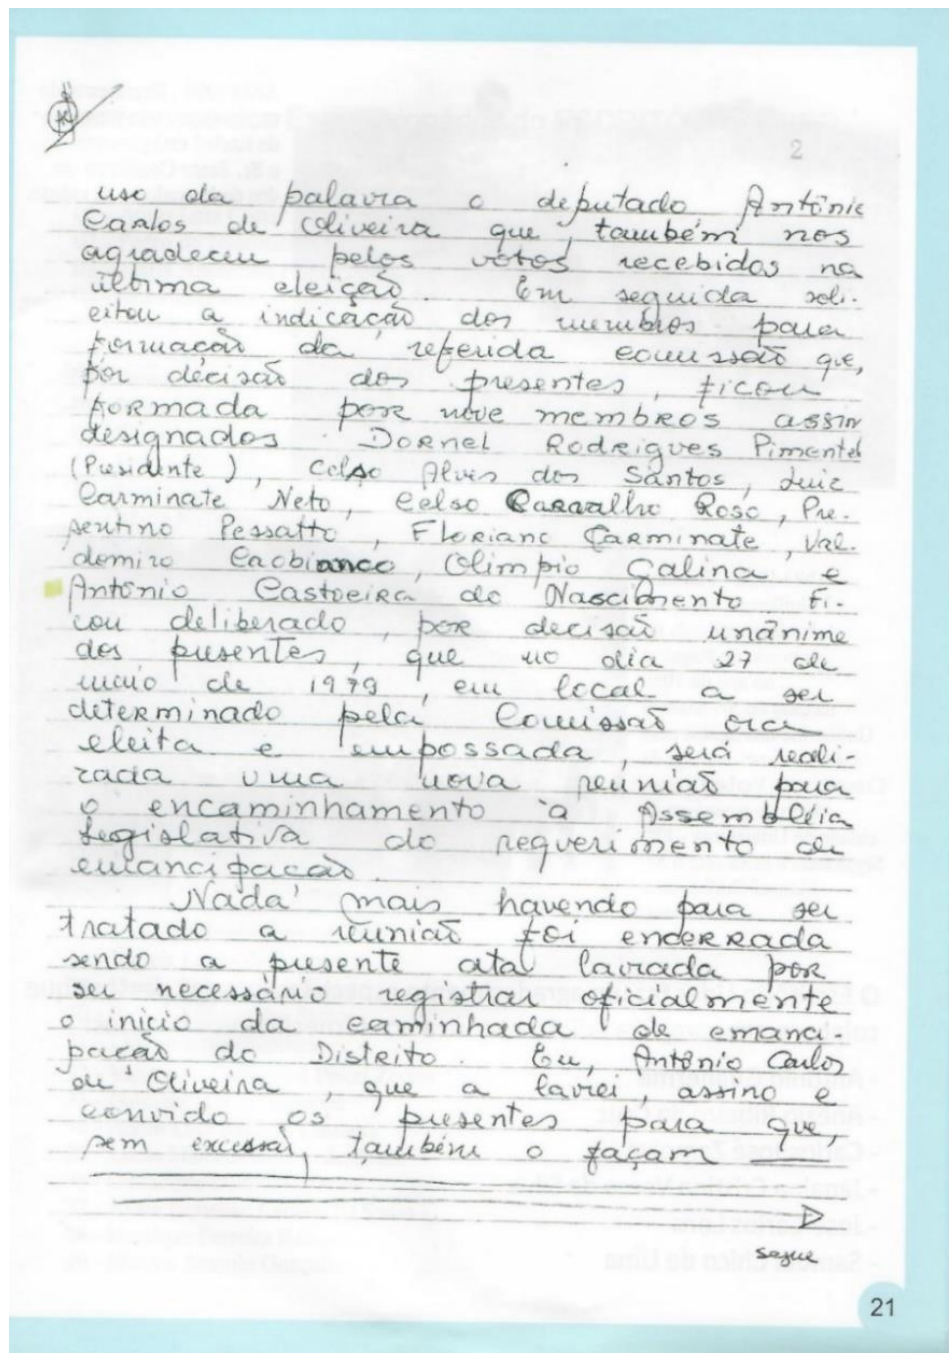 2
uso da palavra o deputado Antônio
Carlos de Oliveira que também nos
agradeceu pelos votos recebidos na
última eleição. Em seguida soli-
citou a indicação dos membros para
formação da referida comissão que,
por decisão dos presentes, ficou
formada por nove membros assim
designados: Dornel Rodrigues Pimentel
(Presidente), Celso Alves dos Santos, Luiz
Carminate Neto, Celso Carvalho Rosa, Pre-
sentino Pessatto, Floriano Carminate, Val-
domiro Caobianco, Olimpio Galina e
Antônio Castoeira do Nascimento. Fi-
cou deliberado, por decisão unânime
dos presentes, que no dia 27 de
maio de 1979, em local a ser
determinado pela Comissão ora
eleita e empossada, será reali-
zada uma nova reunião para
o encaminhamento à Assembléia
Legislativa do requerimento de
emancipação.
Nada mais havendo para ser
tratado a reunião foi encerrada
sendo a presente ata lavrada por
ser necessário registrar oficialmente
o início da caminhada de emanci-
pação do Distrito. Eu, Antônio Carlos
de Oliveira, que a lavrei, assino e
convido os presentes para que,
sem excessão, também o façam
segue
21